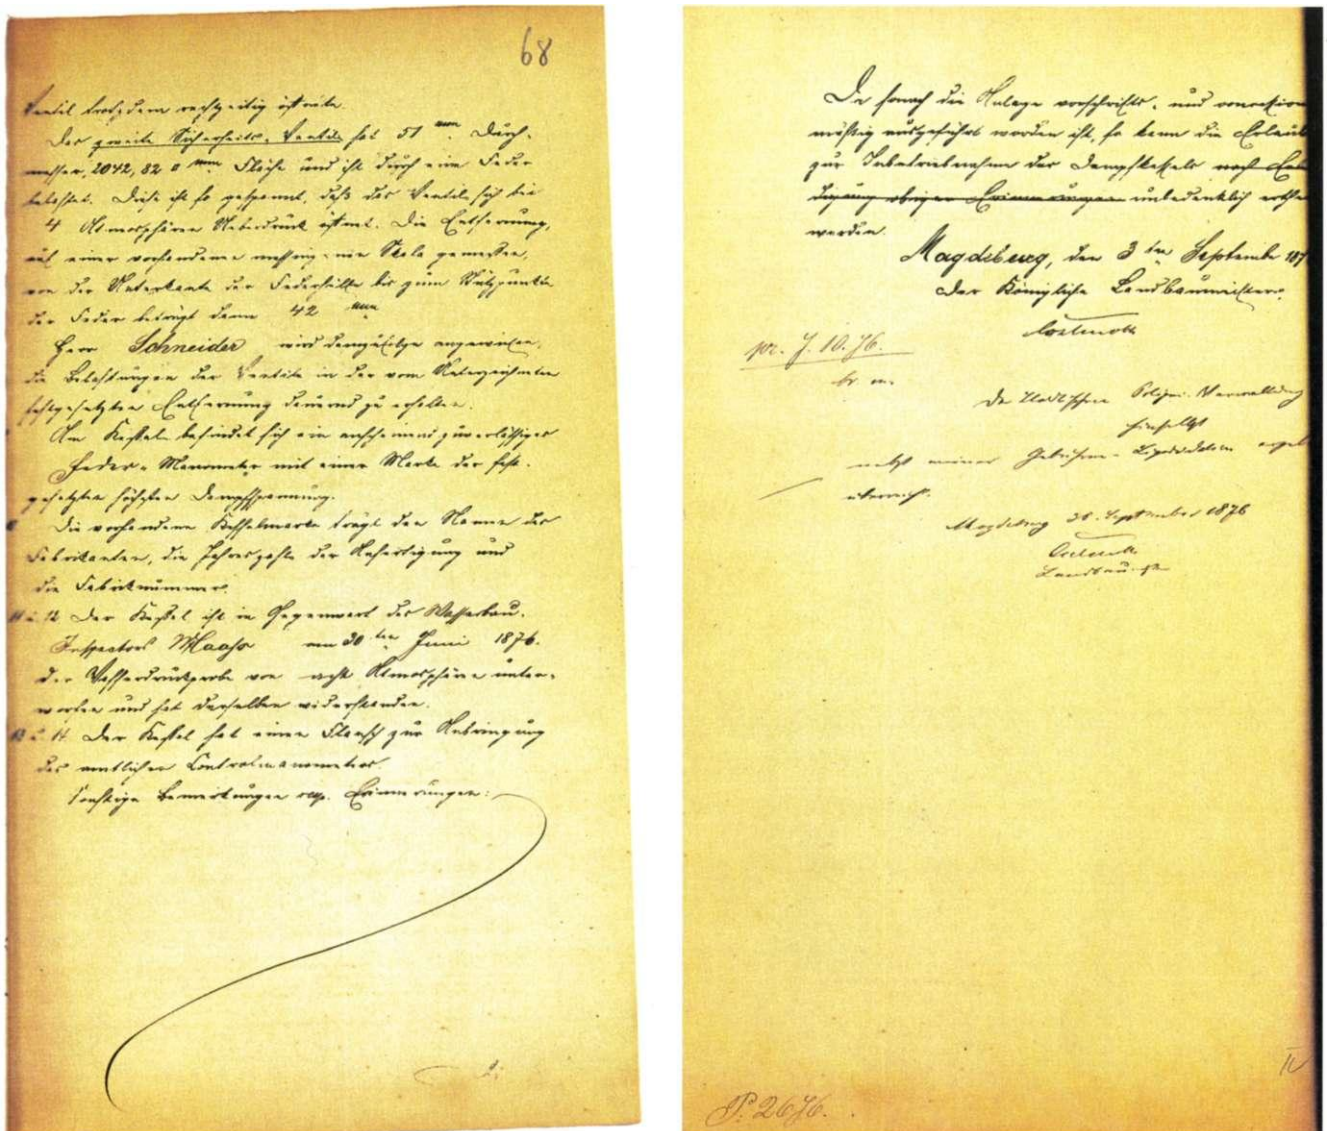 68
Ventil trotzdem rechtzeitig öffnete.
Das zweite Sicherheits-Ventil hat 51 mm Durch-
messer, 2042,82 □ mm Fläche und ist durch eine Feder
belastet. Diese ist so gespannt, daß das Ventil sich bei
4 Atmosphären Ueberdruck öffnet. Die Entfernung,
auf einer vorhandenen messingenen Skala gemessen,
von der Unterkante der Federhülse bis zum Stützpunkte
der Feder beträgt dann 42 mm
Herr Schneider wird demzufolge angewiesen,
die Belastungen der Ventile in der vom Unterzeichneten
festgesetzten Entfernung dauernd zu erhalten.
Am Kessel befindet sich ein anscheinend zuverlässiges
Feder-Manometer mit einer Marke der fest-
gesetzten höchsten Dampfspannung.
Die vorhandene Kesselmarke trägt den Namen des
Fabrikanten, die Jahreszahl der Anfertigung und
die Fabriknummer.
11 u. 12 Der Kessel ist in Gegenwart des Wasserbau-
Inspectors Maass am 30 ten Juni 1876.
der Wasserdruckprobe von acht Atmosphären unter-
worfen und hat derselben widerstanden.
13 u. 14 Der Kessel hat einen Flansch zur Anbringung
des amtlichen Controlmanometers.
Sonstige Bemerkungen resp. Erinnerungen:
Da sonach die Anlage vorschrifts- und concession
mäßig ausgeführt worden ist, so kann die Erlaub
zur Inbetriebnahme des Dampfkessels nach Erle
digung obiger Erinnerungen unbedenklich erthe
werden.
Magdeburg, den 3 ten September 187
Der Königliche Landbaumeister.
pr. 7. 10. 76.
Der Städtischen Polizei-Verwaltung
hierselbst
nebst meiner Gebühren-Liquidation ergeb
überreicht.
Magdeburg 26. September 1876
P. 2676.